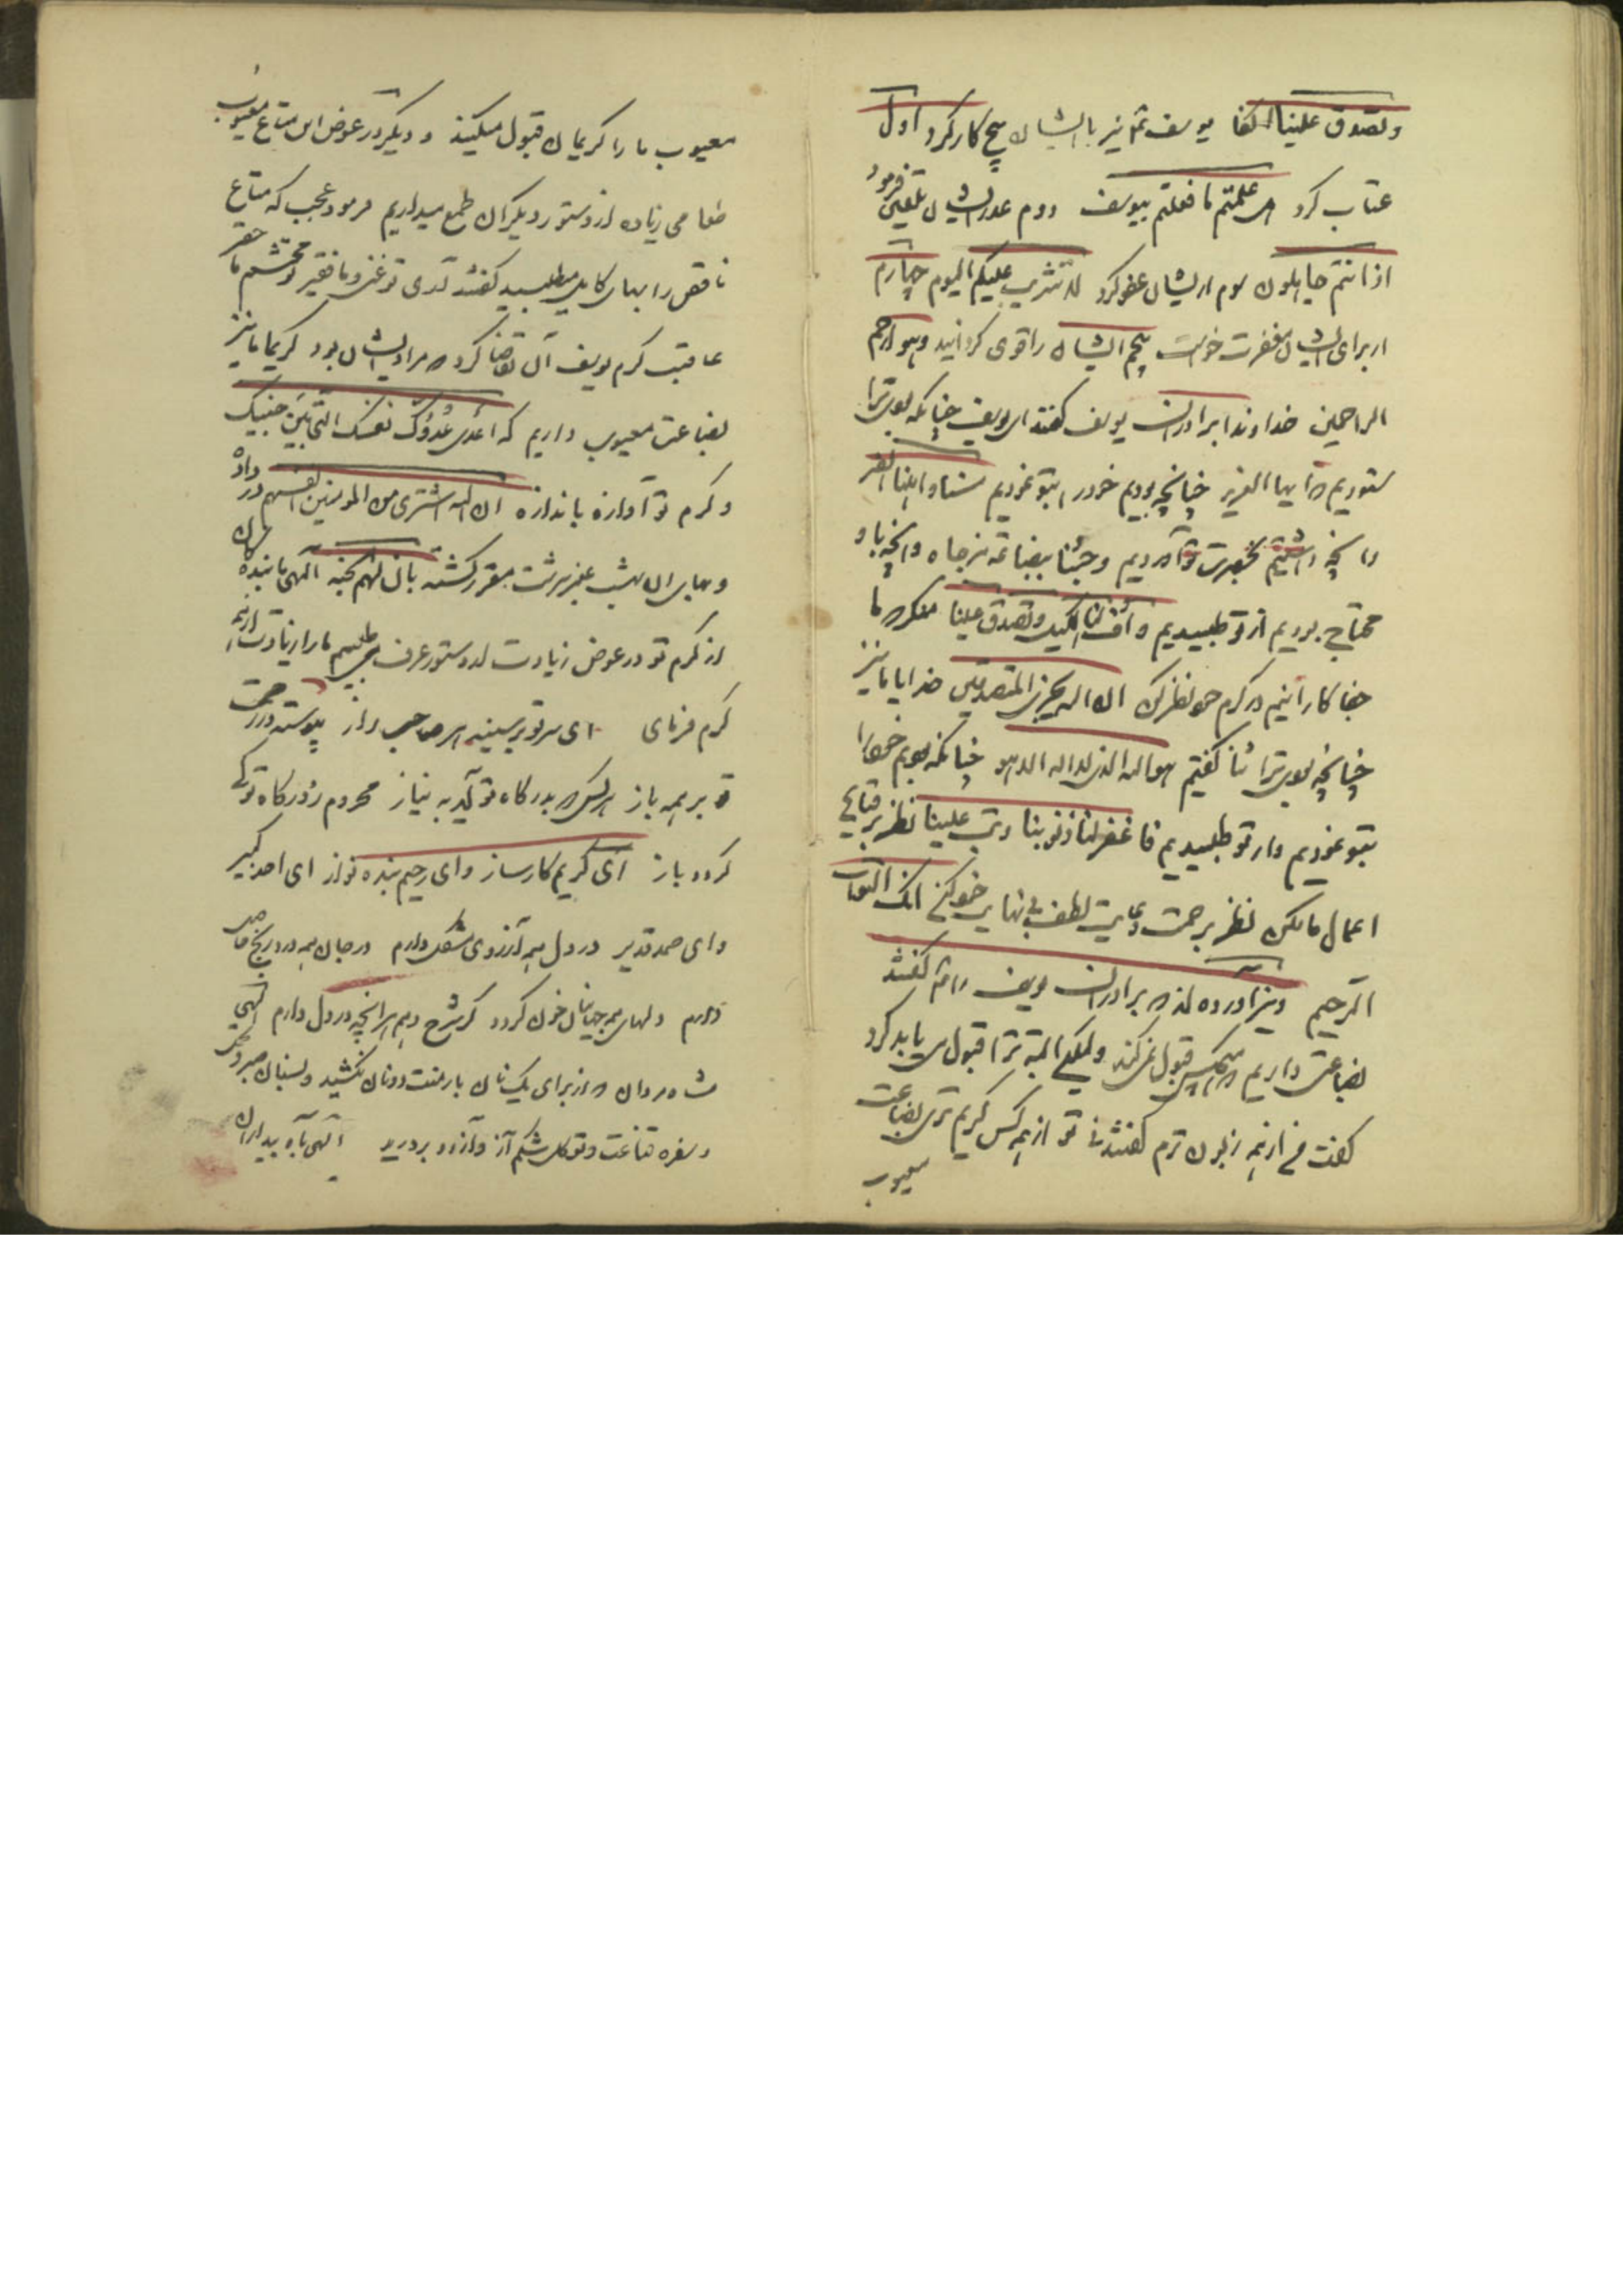 وتصدق علینا الفا یوسف ثم نیز با ایشان پنج کار کرد اول
عتاب کرد هل علمتم ما فعلتم بیوسف دوم عذر ایشان تلقین فرمود
اذا انتم جاهلون سوم از ایشان عفو کرد لا تثریب علیکم الیوم چهارم
از برای ایشان مغفرت خواست پنجم ایشان را قوی گردانید وهو ارحم
الراحمین خداوندا برادران یوسف گفتند ای یوسف چنانکه بودی ترا
ستودیم که ایها العزیز چنانچه بودیم خود را بتو نمودیم مسنا واهلنا الضر
و آنچه داشتیم بحضرت تو آوردیم وجئنا ببضاعة مزجاة و آنچه باو
محتاج بودیم از تو طلبیدیم و أوف لنا الکیل وتصدق علینا مکن که ما
جفا کارانیم در کرم خود نظر کن ان الله یجزی المتصدقین خدایا ما نیز
چنانچه بودی ترا ثنا گفتیم هو الله الذی لا اله الا هو چنانکه بودیم خود را
بتو نمودیم و از تو طلبیدیم فاغفر لنا ذنوبنا وتب علینا نظر بر قبایح
اعمال ما مکن نظر برحمت و لطف بی نهایت خود کن انک انت التواب
الرحیم و نیز آورده اند که برادران یوسف را گفتند
بضاعتی داریم که هیچکس قبول نمی کند ولیکن البته ترا قبول می باید کرد
گفت من از همه زبون ترم گفتند نی تو از همه کس کریم تری بضاعت
معیوب
معیوب ما را کریمان قبول میکنند و دیگر در عوض این متاع معیوب
طعامی زیاده از دستور دیگران طمع میداریم فرمود عجب که متاع
ناقص را بهای کامل میطلبید گفتند آری تو غنی و ما فقیر تو محتشم ما حقیر
عاقبت کرم یوسف آن تقاضا کرد که مراد ایشان بود کریما ما نیز
بضاعت معیوب داریم که اعدی عدوک نفسک التی بین جنبیک
و کرم تو آوازه بانداره ان الله اشتری من المؤمنین انفسهم در داده
و بهای آن بهشت عنبر سرشت مقرر گشته بان لهم الجنة الهی ما بندگان
از کرم تو در عوض زیادت از دستور عرف می طلبیم ما را زیادت از همه
کرم فرمای ای سر تو در سینه هر صاحب راز پیوسته در رحمت
تو بر همه باز هر کس که بدرگاه تو آید به نیاز محروم ز درگاه تو کی
گردد باز ای کریم کارساز و ای رحیم بنده نواز ای احد کبیر
و ای صمد قدیر در دل همه آرزوی مشکل دارم در جان همه درد و رنج حاصل
دارم دلهای همه جهان خون گردد گر شرح دهم هر آنچه در دل دارم الهی
شاه مردان که از برای یک نان بار منت دونان نکشید و بسنان صبر و
و سفره قناعت و توکل شکم آز و آرزو بردرید الهی بآه بیداران